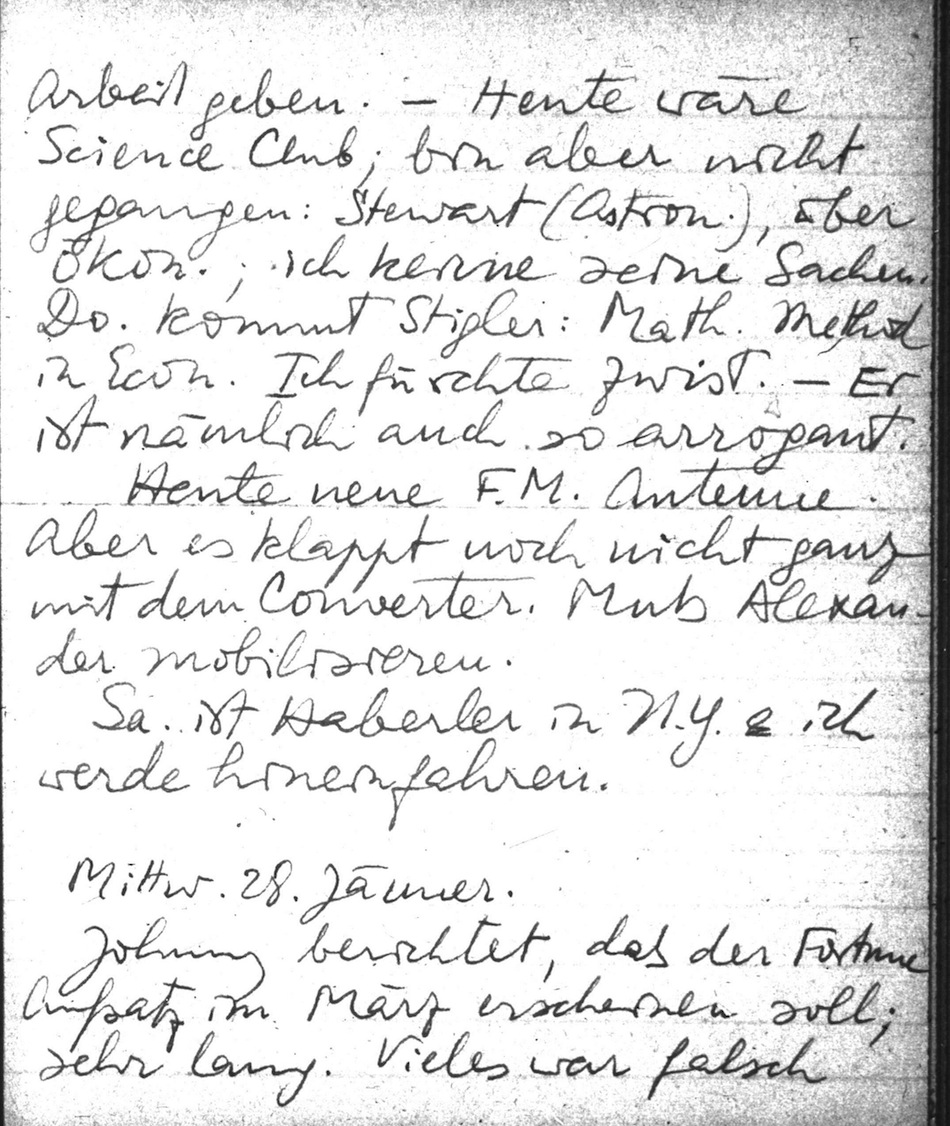 Arbeit geben. – Heute wäre
Science Club; bin aber nicht
gegangen: Stewart (Astron.), über
Ökon.; ich kenne seine Sachen.
Do. kommt Stigler: Math. Method
in Econ. Ich fürchte Zwist. – Er
ist nämlich auch so arrogant.
Heute neue F.M. Antenne.
Aber es klappt noch nicht ganz
mit dem Converter. Muß Alexan-
der mobilisieren.
Sa. ist Haberler in N.Y. & ich
werde hineinfahren.
Mittw. 28. Jänner.
Johnny berichtet, daß der Fortune
Aufsatz im März erscheinen soll;
sehr lang. Vieles war falsch